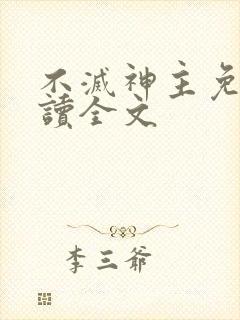 不滅神主免
讀全文
李三爺